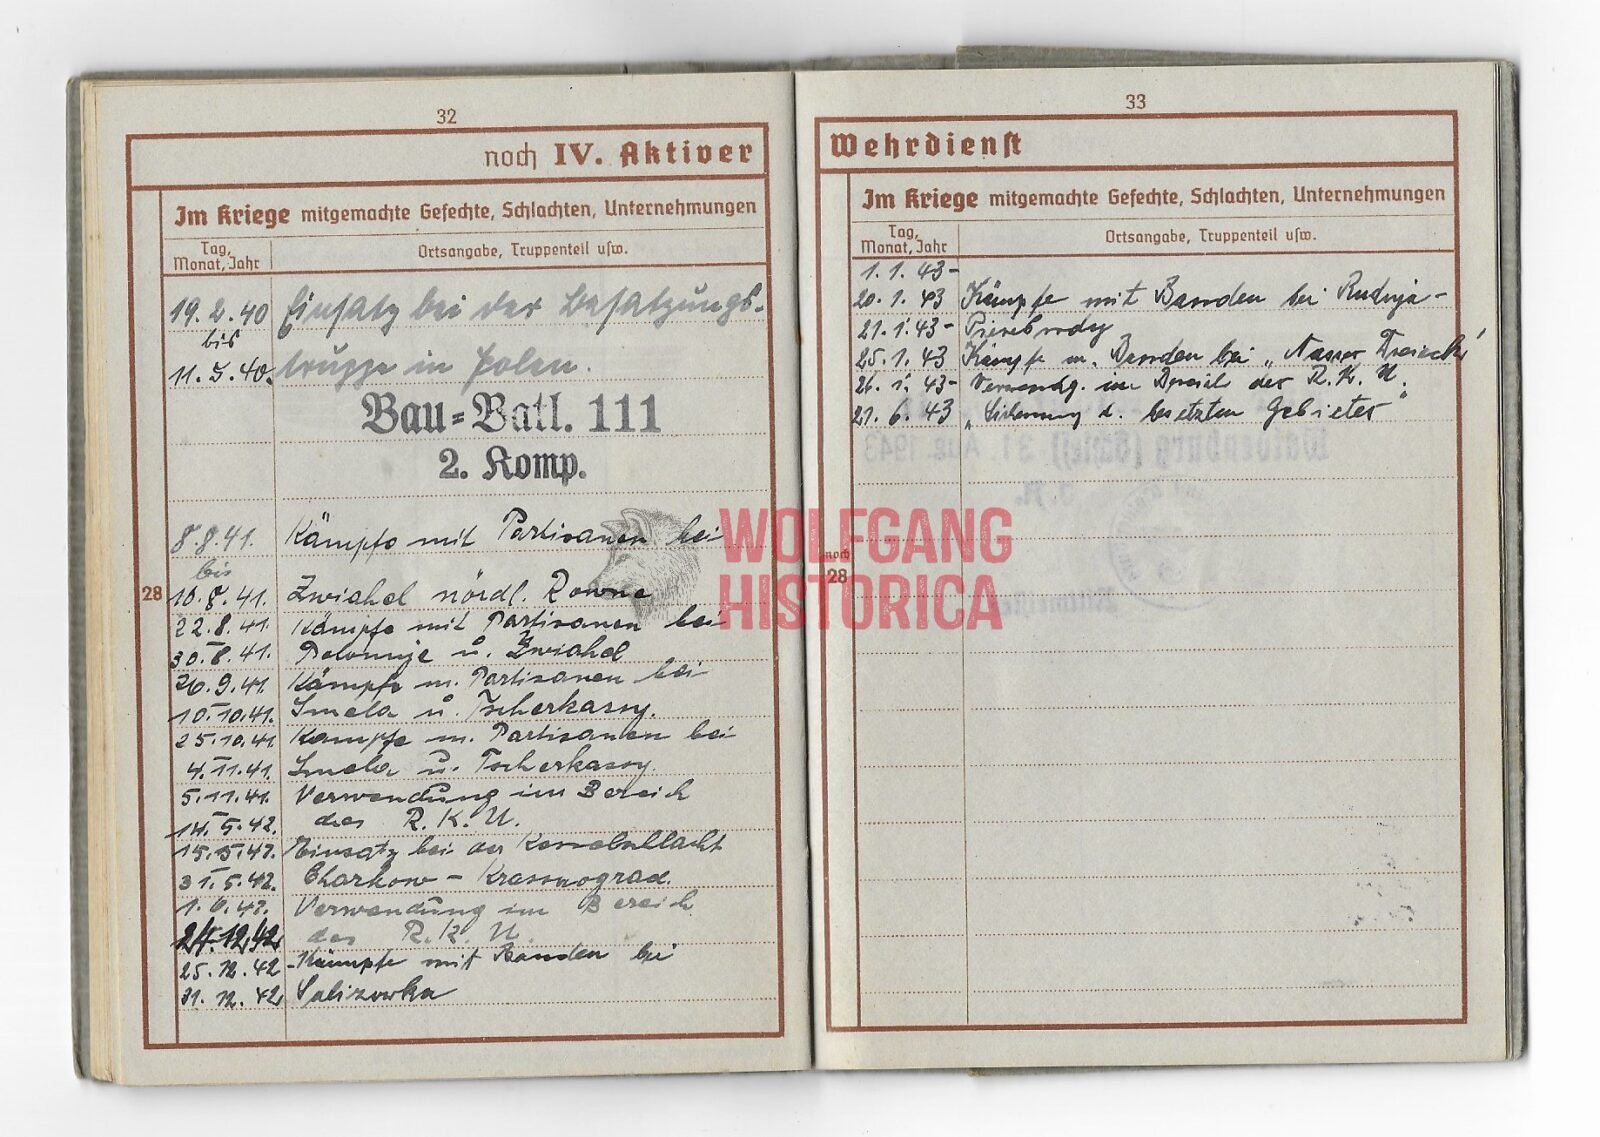 32
noch IV. Aktiver
Im Kriege mitgemachte Gefechte, Schlachten, Unternehmungen
Tag, Monat, Jahr
Ortsangabe, Truppenteil usw.
19.2.40 Einsatz bei der Besatzungs-
bis
11.5.40. truppe in Polen.
Bau=Batl. 111
2. Komp.
8.8.41. Kämpfe mit Partisanen bei
bis
28
10.8.41. Zwiahel nördl. Rowne
22.8.41. Kämpfe mit Partisanen bei
30.8.41. u. Zwiahel
26.9.41. Kämpfe m. Partisanen bei
10.10.41. Smela u. Tscherkassy.
25.10.41 Kämpfe m. Partisanen bei
4.11.41. Smela u. Tscherkassy.
5.11.41. Verwendung im Bereich
14.5.42. des R.K.U.
15.5.42. Einsatz bei der Kesselschlacht
31.5.42. Charkow - Krassnograd.
1.6.42. Verwendung im Bereich
24.12.42. des R.K.U.
25.12.42 - Kämpfe mit Banden bei
31.12.42
33
Wehrdienst
Im Kriege mitgemachte Gefechte, Schlachten, Unternehmungen
Tag, Monat, Jahr
Ortsangabe, Truppenteil usw.
1.1.43-
20.1.43 Kämpfe mit Banden bei Rudnja-
21.1.43-
25.1.43 Kämpfe m. Banden bei
26.1.43- Verwendg. im Bereich des R.K.U.
21.6.43 "Sicherung d. besetzten Gebietes"
noch
28
WOLFGANG
HISTORICA